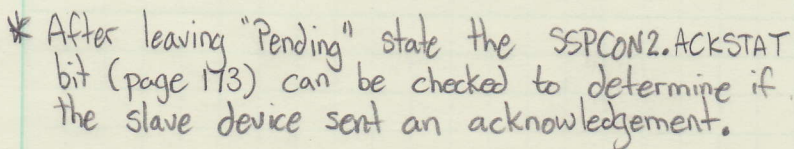 * After leaving "Pending" state the SSPCON2.ACKSTAT
bit (page 173) can be checked to determine if
the slave device sent an acknowledgement.